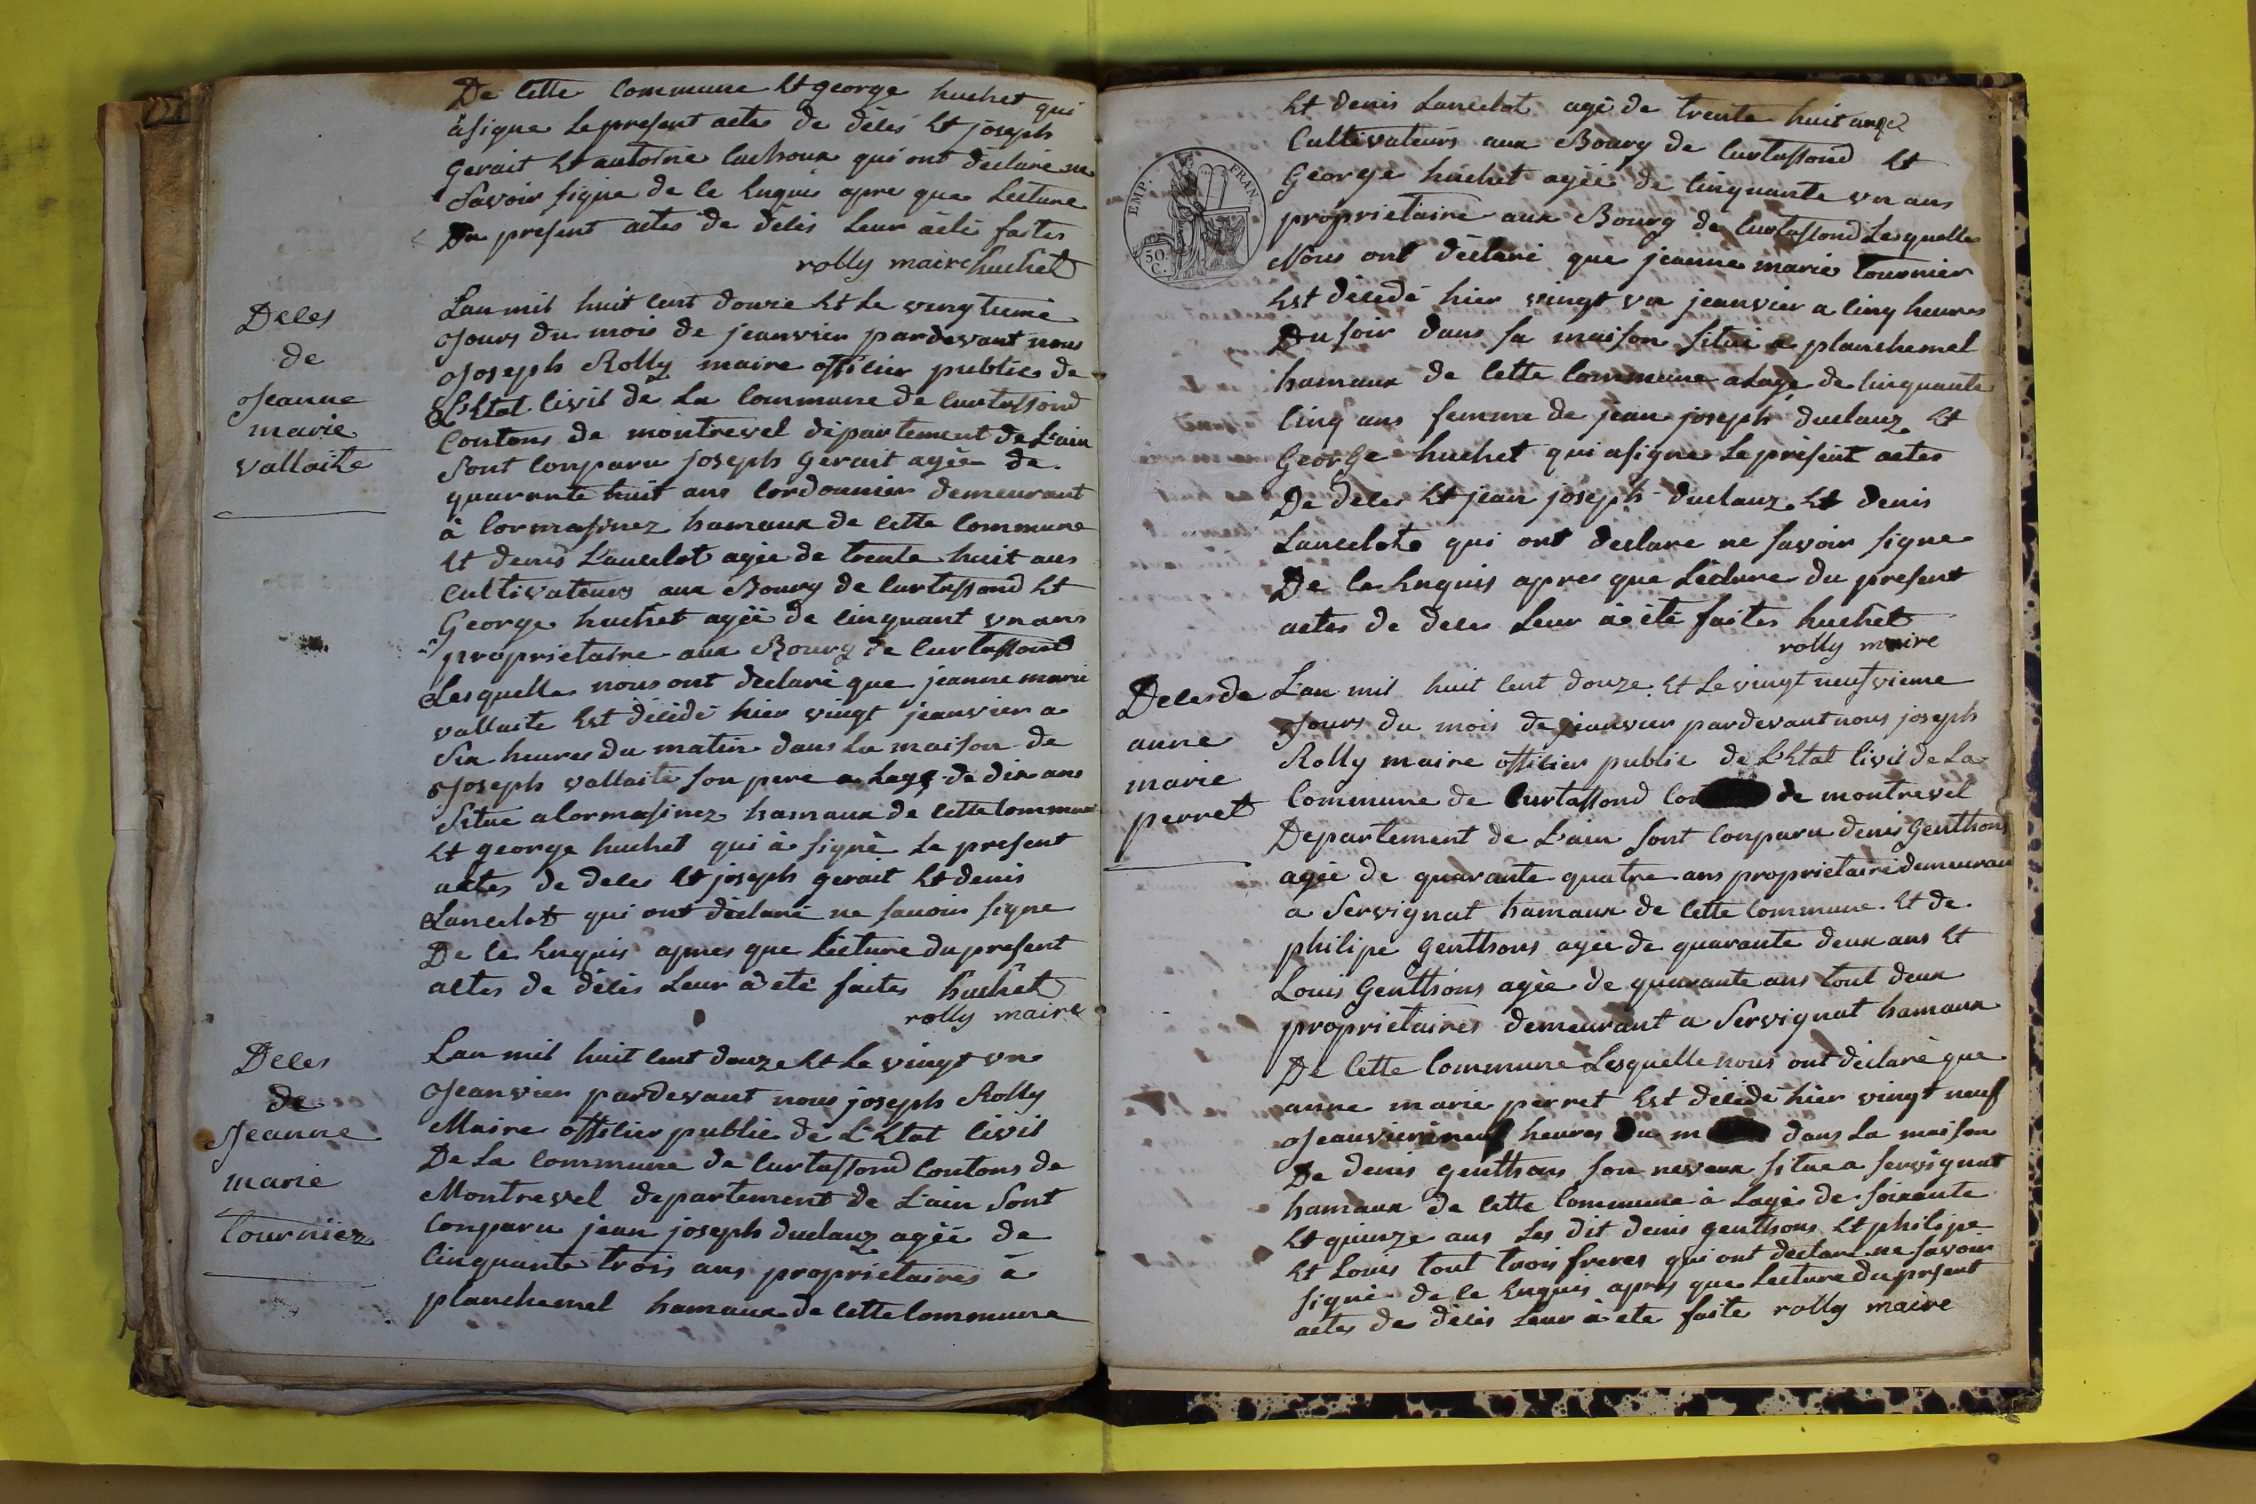 De cette commune Et george huchet qui
àsigne Le present actes de décés Et joseph
gerait Et antoine lachoux qui ont déclaré ne
Savoir signe de ce Enquis apre que Lecture
Du present actes de décés Leur àété faites
rolly maire huchet
Deces
de
Jeanne
marie
vallaite
Lan mil huit cent douze Et Le vingtunie
Jours du mois de jeanvier pardevant nous
Joseph Rolly maire officier public de
L'Etat civil de La commune de Curtassond
Contons de montrevel département de L'ain
Sont conparu joseph gerait agée de
quarante huit ans cordonnier demeurant
à Cormasinez hamaux de cette commune
Et denis Lancelot agée de trente huit ans
cultivateurs aux Bourg de Curtassond Et
George huchet agéé de cinquant un ans
proprietaire aux Bourg de Curtassond
Lesquelle nous ont declaré que jeanne marie
vallaite Est décédé hier vingt jeanvier a
Six heures du matin dans La maison de
Joseph vallaite son pere a Lage de dix ans
Situe a Cormasinez hamaux de cette commune
Et george huchet qui à signè Le present
actes de deces Et joseph gerait Et denis
Lancelot qui ont déclaré ne savoir signe
De ce Enquis apres que Lécture du present
actes de décés Leur à été faites huchet
rolly maire
Deces
de
Jeanne
marie
tourniez
Lan mil huit cent douze Et Le vingt un
Jeanvier pardevant nous joseph Rolly
Maire officier public de L'Etat civil
De La commune de Curtassond Contons de
Montrevel departement de L'ain Sont
Conparu jean joseph duclauz agéé de
Cinquante trois ans proprietaires à
planchemel hamaux de cette commune
Et denis Lancelot agé de trente huit ans
Cultivateurs aux Bourg de Curtassond Et
George huchet agéé de cinquante un ans
proprietaire aux Bourg de Curtassond Lesquelle
Nous ont déclaré que jeanne marie tournier
Est décédé hier vingt un jeanvier a cinq heures
Du soir dans sa maison situé a planchemel
hamaux de cette commune a Lage de cinquante
cinq ans femme de jean joseph duclauz Et
George huchet qui asigne Le présent actes
De deces Et jean joseph duclauz Et denis
Lancelot qui ont declare ne savoir signe
De ce Enquis apres que Lécture du present
actes de deces Leur àété faites huchet
rolly maire
EMP. FRAN.
50 C.
Deces de
anne
marie
perret
L'an mil huit cent douze Et Le vingt neufvieme
Jours du mois de jeanvier pardevant nous joseph
Rolly maire officier public de L'Etat civil de La
Commune de Curtassond de montrevel
Departement de L'ain Sont conparu denis Genthons
agée de quarante quatre ans proprietaire demeurau
a Servignat hamaux de cette commune Et de
philipe genthons agée de quarante deux ans Et
Louis Genthons agée de quarante ans tout deux
proprietaires demeurant a Servignat hamaux
De cette commune Lesquelle nous ont déclaré que
anne marie perret Est décédé hier vingt neuf
Jeanvier neuf heures Du dans La maison
De denis genthons son neveux situe a servignat
hamaux de cette commune à Lagé de soixante
Et quinze ans Les dit denis genthons Et philipe
Et Louis tout trois freres qui ont déclaré ne savoir
signé de ce Enquis aprés que Lecture du present
actes de décés Leur àeté faite rolly maire